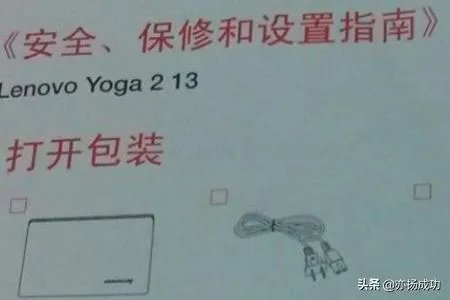 《安全、保修和设置指南》
Lenovo Yoga 2 13
打开包装
头条 @亦扬成功